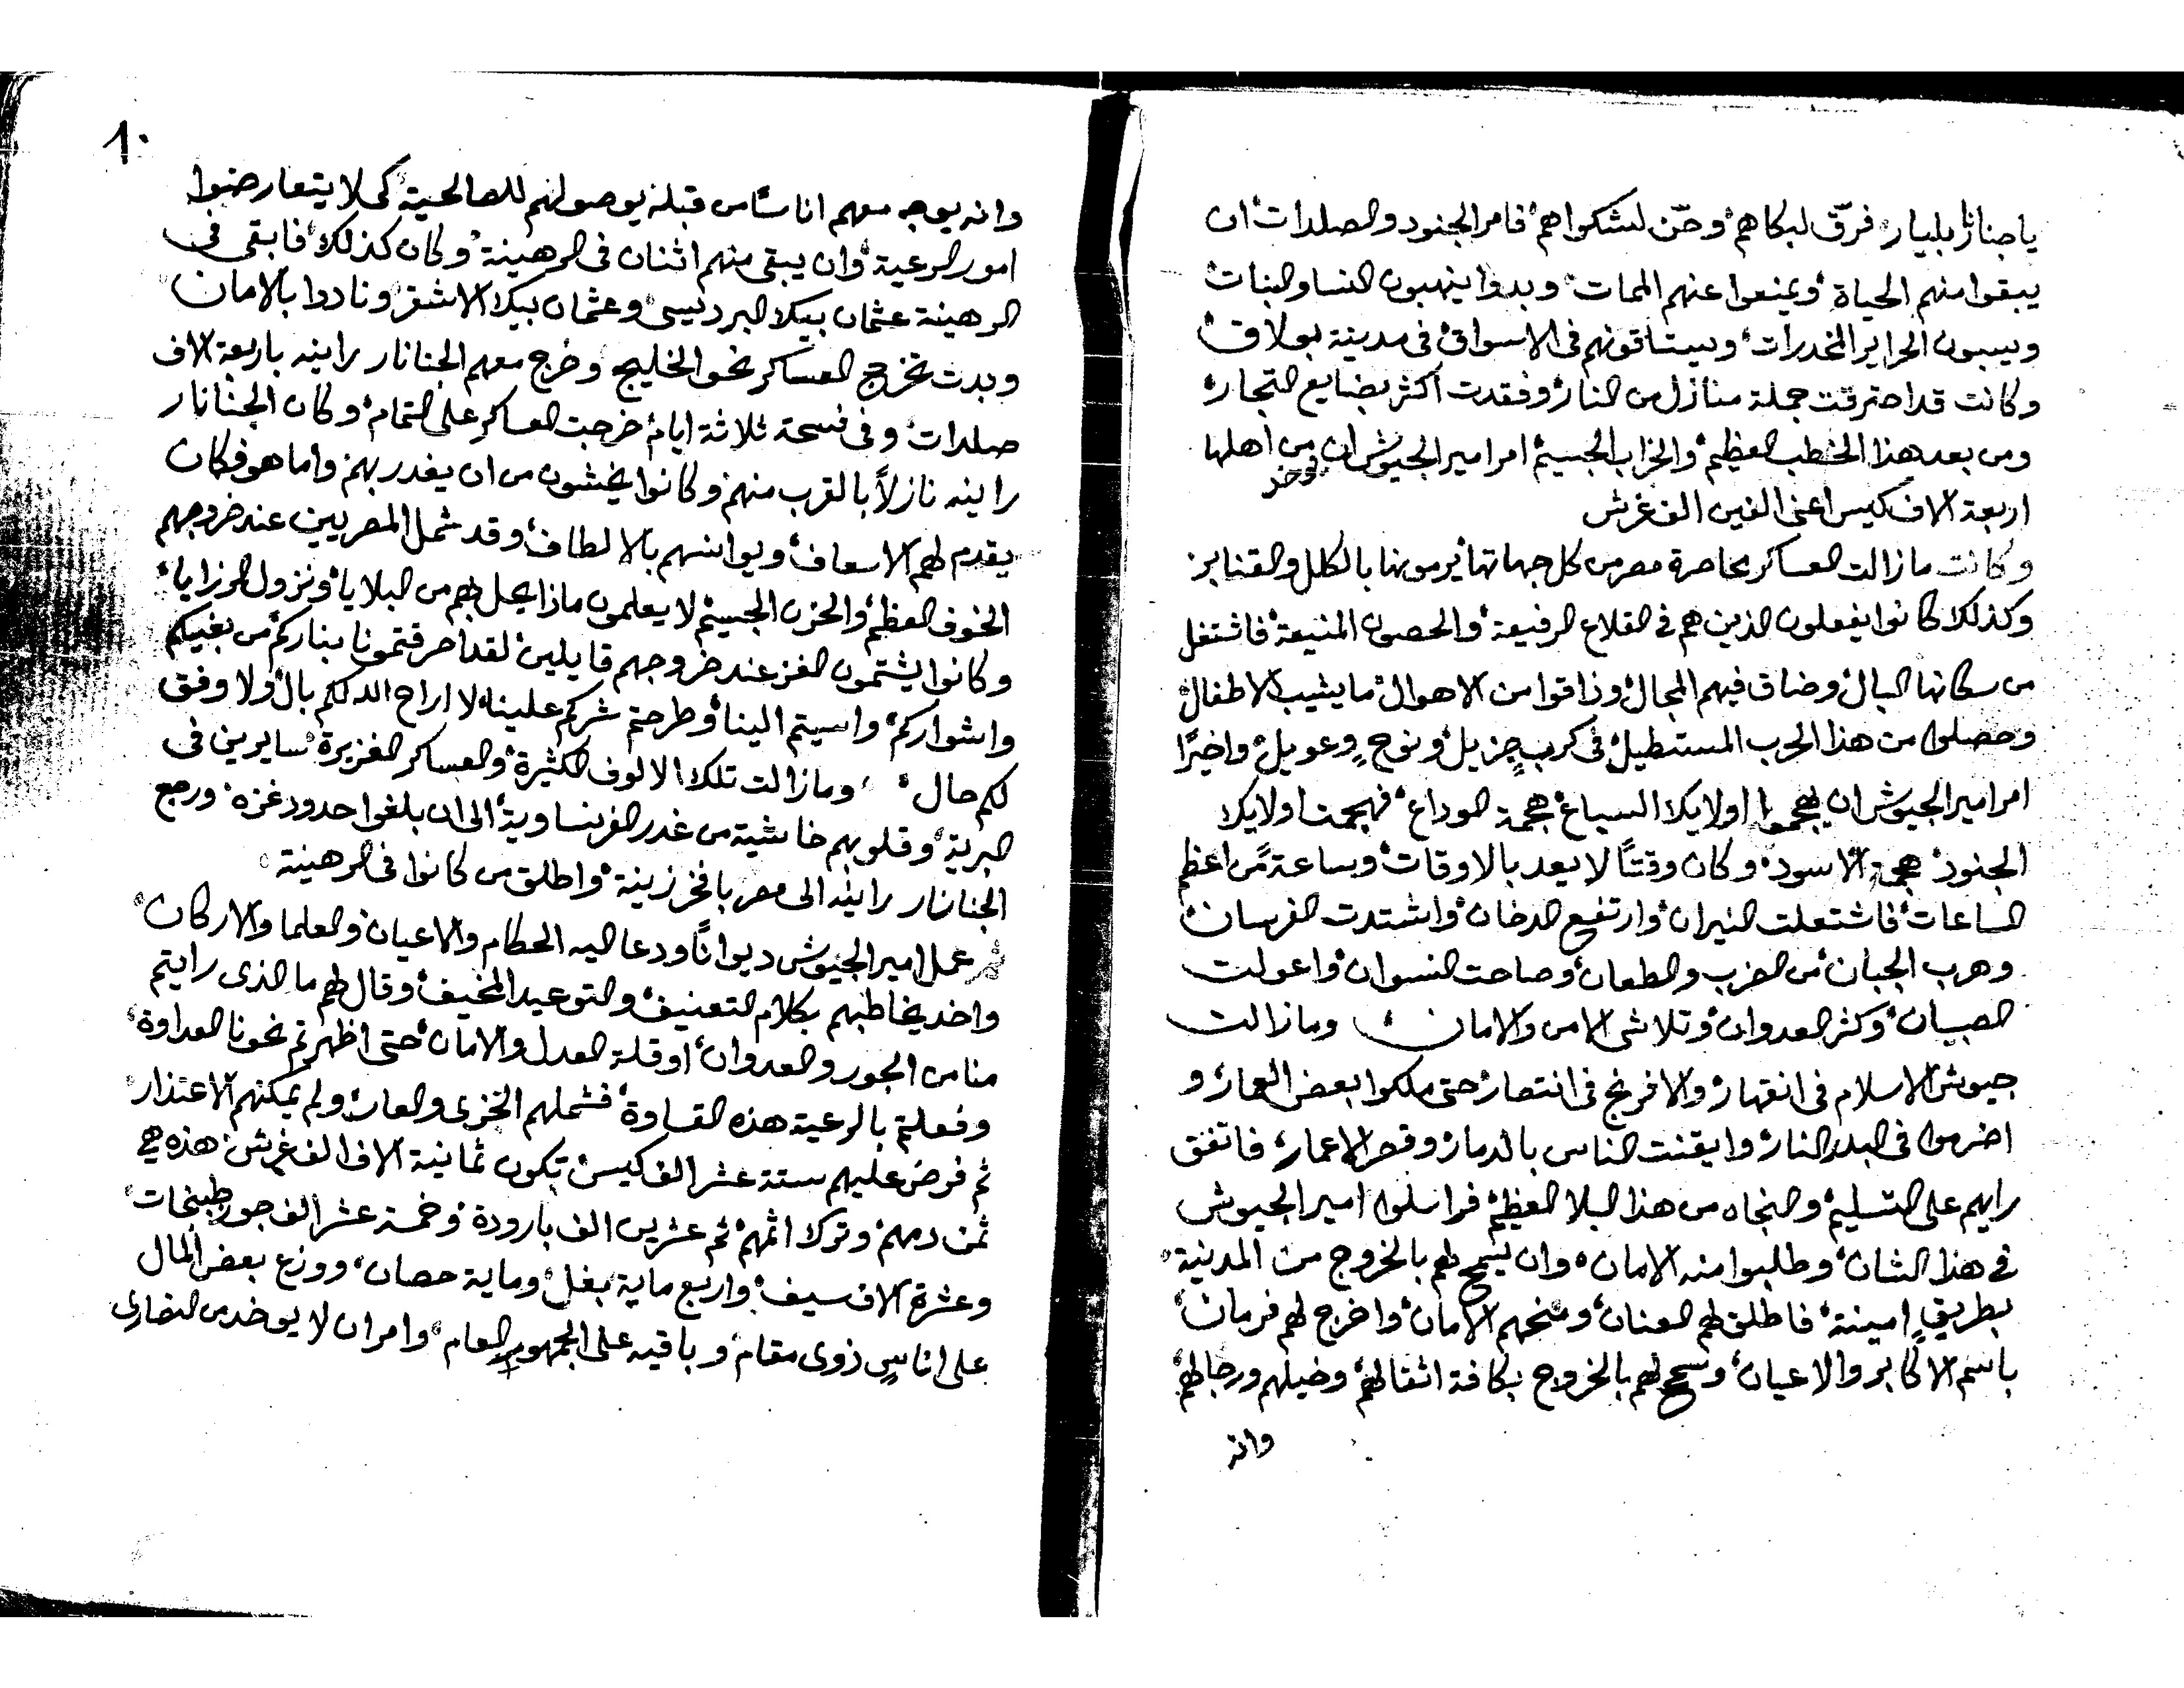 يا جنانار بليار فرق لبكاهم وحن لشكواهم فامر الجنود والصلدات ان
يبقوا منهم الحياة ويمنعوا عنهم الممات وبدوا ينهبون النسا والبنات
ويسبون الحراير المخدرات ويستاقونهم فى الاسواق فى مدينة بولاق
وكانت قد احترقت جملة منازل من النار وفقدت اكثر بضايع التجار
ومن بعد هذا الخطب العظيم والخراب الجسيم امر امير الجيوش ان يوخد من اهلها
اربعة الاف كيس اعنى الفين الف غرش
وكانت ما زالت العساكر محاصرة مصر من كل جهاتها يرمونها بالكلل والقنابر
وكذلك كانوا يفعلون الذين هم فى القلاع الرفيعة والحصون المنيعة فاشتغل
من سكانها البال وضاق فيهم المجال وذاقوا من الاهوال ما يشيب الاطفال
وحصلوا من هذا الحرب المستطيل فى كربٍ جزيل ونوحٍ وعويل واخيرًا
امر امير الجيوش ان يهجموا اولايك السباع هجمة الوداع فهجمت اولايك
الجنود هجمة الاسود وكان وقتًا لا يعد بالاوقات وساعةً من اعظم
الساعات فاشتعلت النيران وارتفع الدخان واشتدت الفرسان
وهرب الجبان من الضرب والطعان وصاحت النسوان واعولت
الصبيان وكثر العدوان وتلاشى الامن والامان وما زالت
جيوش الاسلام فى انقهار والافرنج فى انتصار حتى ملكوا بعض العمار و
اضرموا فى البلد النار وايقنت الناس بالدمار وقصر الاعمار فاتفق
رايهم على التسليم والنجاه من هذا البلا العظيم فراسلوا امير الجيوش
فى هذا الشان وطلبوا منه الامان وان يسمح لهم بالخروج من المدينة
بطريقٍ امينة فاطلق لهم العنان ومنحهم الامان واخرج لهم فرمان
باسم الاكابر والاعيان وسمح لهم بالخروج بكافة اثقالهم وخيلهم ورجالهم
وانه
١٠
وانه يوجه معهم اناسًا من قبله يوصلونهم للصالحية كى لا يتعارضوا
امور الرعية وان يبقى منهم اثنان فى الرهينة وكان كذلك فابقى فى
الرهينة عثمان بيك البرديسى وعثمان بيك الاشقر ونادوا بالامان
وبدت تخرج العساكر نحو الخليج وخرج معهم الجنانار راينه باربعة الاف
صلدات وفى فسحة ثلاثة ايام خرجت العساكر على التمام وكان الجنانار
راينه نازلاً بالقرب منهم وكانوا يخشون من ان يغدر بهم واما هو فكان
يقدم لهم الاسعاف ويوانسهم بالالطاف وقد شمل المصريين عند خروجهم
الخوف العظيم والحزن الجسيم لا يعلمون ماذا يحل بهم من البلايا ونزول الرزايا
وكانوا يشتمون الغز عند خروجهم قايلين لقد احرقتمونا بناركم من بغيكم
واشواركم واسيتم الينا وطرحتم شركم علينا لا اراح الله لكم بال ولا وفق
لكم حال وما زالت تلك الالوف الكثيرة والعساكر الغزيرة سايرين فى
البرية وقلوبهم خاشية من غدر الفرنساوية الى ان بلغوا حدود غزه ورجع
الجنانار راينه الى مصر بافخر زينة واطلق من كانوا فى الرهينة
ثم عمل امير الجيوش ديوانًا ودعا اليه الحكام والاعيان والعلما والاركان
واخد يخاطبهم بكلام التعنيف والتوعيد المخيف وقال لهم ما الذى رايتم
منا من الجور والعدوان او قلة العدل والامان حتى اظهرتم نحونا العداوة
وفعلتم بالرعية هذه القساوة فشملهم الخزى والعار ولم يمكنهم الاعتذار
ثم فرض عليهم ستة عشر الف كيس تكون ثمانية الاف الف غرش هذه هى
ثمن دمهم وترك اثمهم ثم عشرين الف بارودة وخمسة عشر الف جوز طبنجات
وعشرة الاف سيف واربع ماية بغل وماية حصان ووزع بعض المال
على اناسٍ ذوى مقام وباقيه على الجمهور العام وامر ان لا يوخد من النصارى